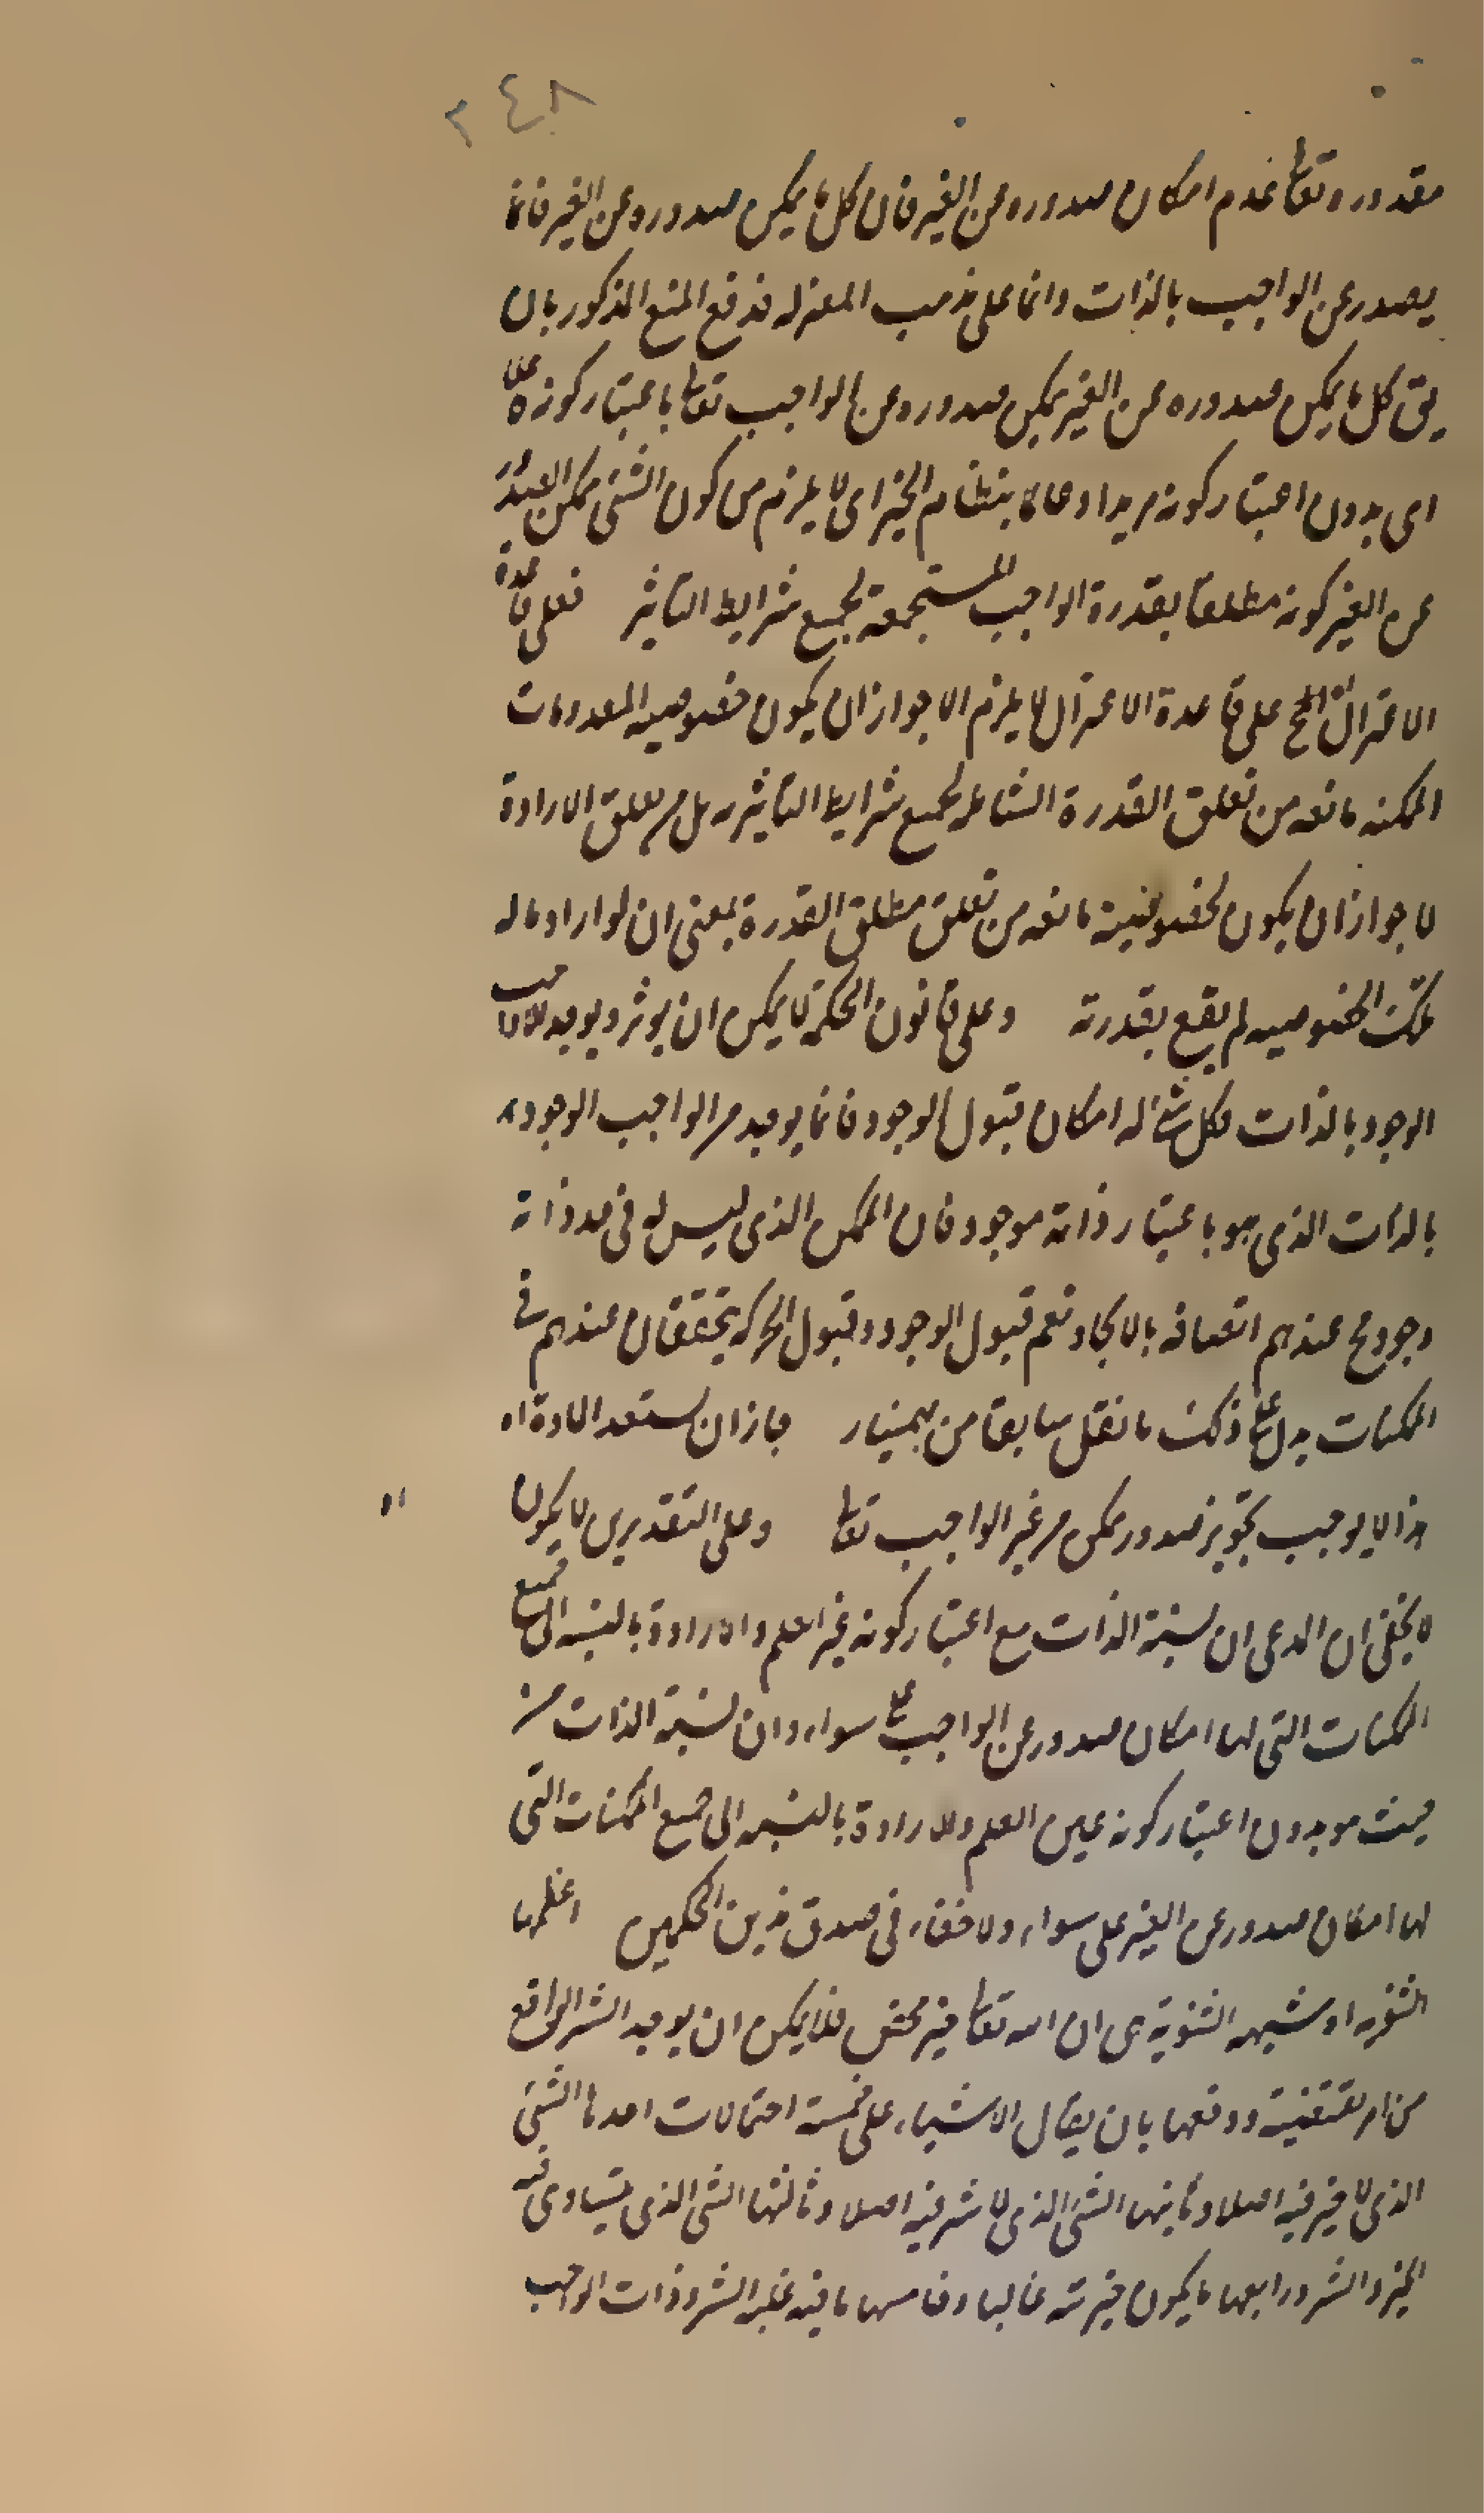 ٢٤٨
مقدوره تعا عدم امكان صدوره عن الغير فان كل ما يمكن صدوره عن الغير فانما
يصدر عن الواجب بالذات واما على مذهب المعتزله فدفع المنع المذكور بان
يق كل ما يمكن صدوره عن الغير يمكن صدوره عن الواجب تعا باعتبار كونه
اى بدون اعتبار كونه مريدا وعالما بنظام الخير اى لا يلزم من كون الشئ ممكن الصدور
عن الغير كونه متعلقا بقدرة الواجب المستجمعة لجميع شرايط التاثير فعلى قاعدة
الاعتزال الخ على قاعدة الاعتزال لا يلزم الا جواز ان يكون خصوصيه المعدومات
الممكنه مانعه من تعلق القدرة الشامله لجميع شرايط التاثير بل من تعلق الارادة
لا جواز ان يكون لخصوصية مانعه من تعلق مطلق القدرة بمعنى ان لو اراد ماله
تلك الخصوصيه لم يقع بقدرته وعلى قانون الحكمة لا يمكن ان يوثر ويوجد الا واجب
الوجود بالذات فكل شئ له امكان قبول الوجود فانما يوجد من الواجب الوجود
بالذات الذى هو باعتبار ذاته موجود فان الممكن الذى ليس له فى حد ذاته
وجود مح عندهم اتصافه بالايجاد نعم قبول الوجود وقبول الحركه يتحققان عندهم فى
الممكنات يدل على ذلك ما نقل سابقا من بهمنيار جاز ان يستعد المادة اه
هذا لا يوجب تجويز صدور ممكن من غير الواجب تعا وعلى التقديرين لا يكون
لا يخفى ان المدعى ان نسبة الذات مع اعتبار كونه غير العلم والارادة بالنسبه الى جميع
الممكنات التى لها امكان صدور عن الواجب على سواء وان نسبة الذات من
حيث هو بدون اعتبار كونه عين العلم والارادة بالنسبه الى جميع الممكنات التى
لها امكان صدور عن الغير على سواء ولا خفاء فى صدق هذين الحكمين اعظمها
الثنويه اه شبهه الثنوية هى ان الله تعا خير محض فلا يمكن ان يوجد الشر الواقع
من امر تقتضية ودفعها بان يقال الاشياء على خمسة احتمالات احدها الشئ
الذى لا خير فيه اصلا وثانيها الشئ الذى لا شر فيه اصلا وثالثها الشئ الذى يتساوى فيه
الخير والشر ورابعها ما يكون خيريته غالبا وخامسها ما فيه غلبه الشر وذات الواجب